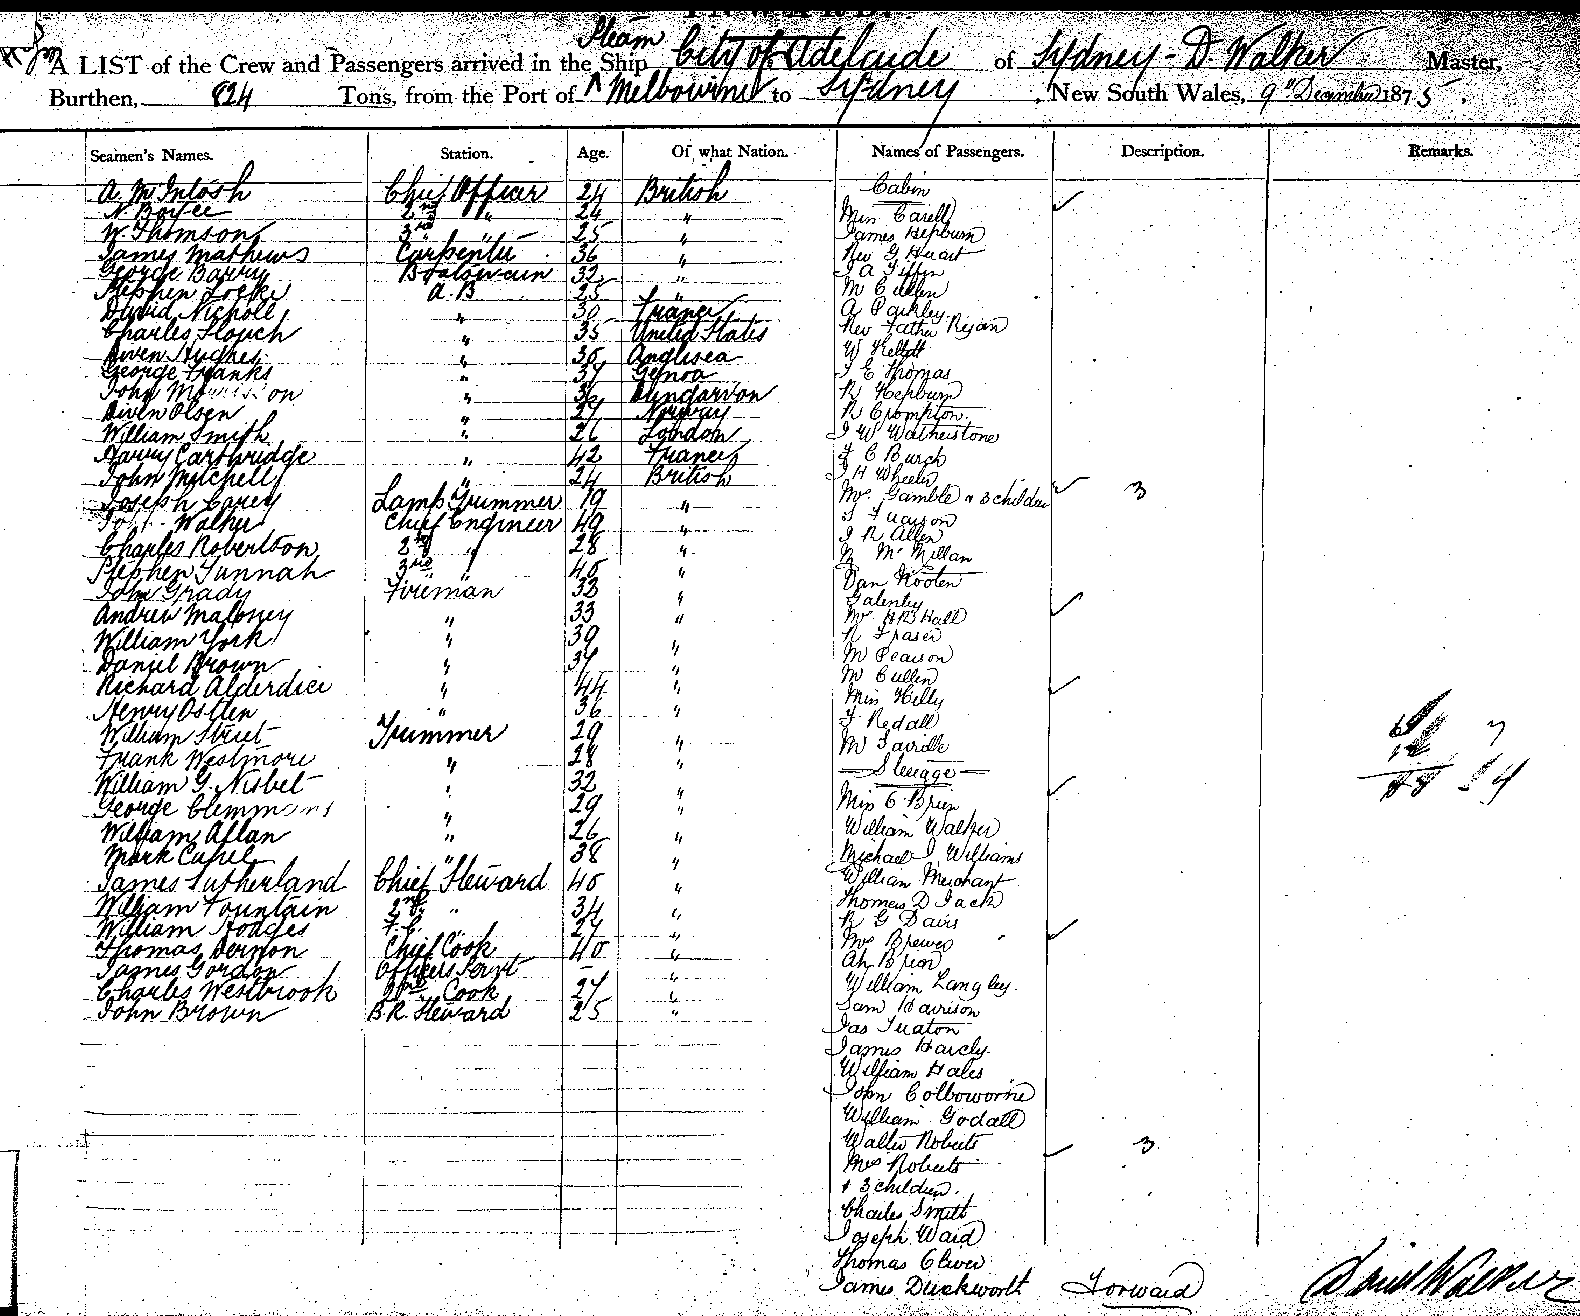 Steam
A LIST of the Crew and Passengers arrived in the Ship City of Adelaide of Sydney - D. Walker Master,
Burthen, 824 Tons, from the Port of Melbourne to Sydney, New South Wales, 9th December 1875.
Seamen's Names. Station. Age. Of what Nation. Names of Passengers. Description. Remarks.
Cabin
A. McIntosh Chief Officer 24 British
N. Boyce 2nd " 24 " Miss Carell
W. Thomson 3rd " 25 " James Hepburn
James Mathews Carpenter 36 " Rev G Huart
George Barry Boatswain 32 " J A Tiffin
Stephen Locke A.B 25 " M Cullen
David Nicholl " 30 France A Parkley
Charles Flouch " 35 United States Rev Father Ryan
Owen Hughes " 30 Anglisea W Kellett
George Franks " 37 Genoa J E Thomas
John " Dungarvon R Hepburn
Owen Olsen " 27 Norway R Crompton
William Smith " 26 London J W Watherstone
Harry Cartwridge " 42 France F C Burch
John Mitchell " 24 British J H Wheeler
Joseph Carey Lamp Trimmer 19 " Mrs Gamble & 3 children 3
Walker Chief Engineer 49 "
Charles Robertson 2nd " 28 " J R Allen
Stephen Tunnah 3rd " 40 " McMillan
John Grady Fireman 33 " Dan Wooten
Andrew Maloney " 33 " Galenley
William York " 39 " Mrs H R Hall
Daniel Brown " 37 " R Fraser
Richard Alderdice " 44 " M Pearson
Henry Ostlen " 36 " M Cullen
William Street Trimmer 29 " Miss Kelly
Frank Westmore " 28 " F Redall
William G. Nisbet " 32 " M Saville
George Clemmons " 29 " Steerage
William Allan " 26 " Miss C Brien
Mark Cupel " 38 " William Walker
James Sutherland Chief Steward 40 " Michael J Williams
William Fountain 2nd " 34 " William Merchant
William Hodges F.C. 27 " Thomas D Jack
Thomas Vernon Chief Cook 40 " R G Davis
James Gordon Officers Servt - " Mrs Brewer
Charles Westbrook 2nd Cook 27 " Ah Brien
John Brown B.R. Steward 25 " William Langley
Sam Harrison
Jas Tuaton
James Hardy
William Hales
John Colboworne
William Godall
Walter Roberts
Mrs Roberts 3
+ 3 children.
Charles Smith
Joseph Ward
Thomas Oliver
James Duckworth Forward David Walker